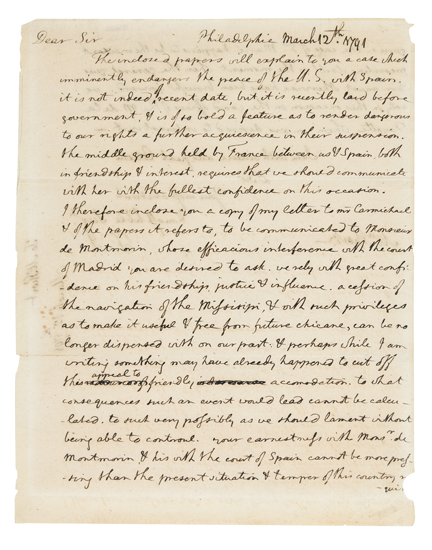 Dear Sir Philadelphia March 12th. 1791
The inclosed papers will explain to you a case which
imminently endangers the peace of the U.S. with Spain.
it is not indeed of recent date, but it is recently laid before
government, & is of so bold a feature as to render dangerous
to our rights a further acquiescence in their suspension.
the middle ground held by France between us & Spain both
in friendship & interest, requires that we should communicate
with her with the fullest confidence on this occasion.
I therefore inclose you a copy of my letter to mr Carmichael
& of the papers it refers to, to be communicated to Monsieur
de Montmorin, whose efficacious interference with the court
of Madrid you are desired to ask. we rely with great confi-
-dence on his friendship, justice & influence. a cession of
the navigation of the Missisipi, & with such privileges
as to make it useful & free from future chicane, can be no
longer dispensed with on our part: & perhaps while I am
writing something may have already happened to cut off
appeal to
this friendly accomodation. to what
consequences such an event would lead cannot be calcu-
-lated. to such very possibly as we should lament without
being able to controul. your earnestness with Monsr. de
Montmorin & his with the court of Spain cannot be more pres-
-sing than the present situation & temper of this country